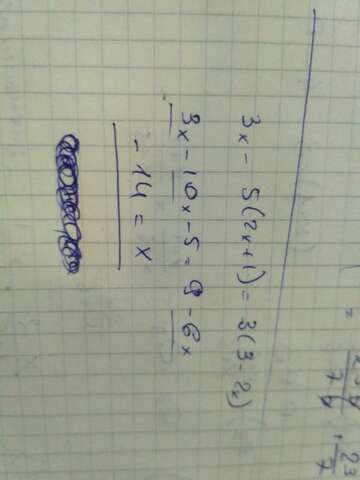 3x - 5(2x+1) = 3(3-2x)
3x - 10x - 5 = 9 - 6x
- 14 = x